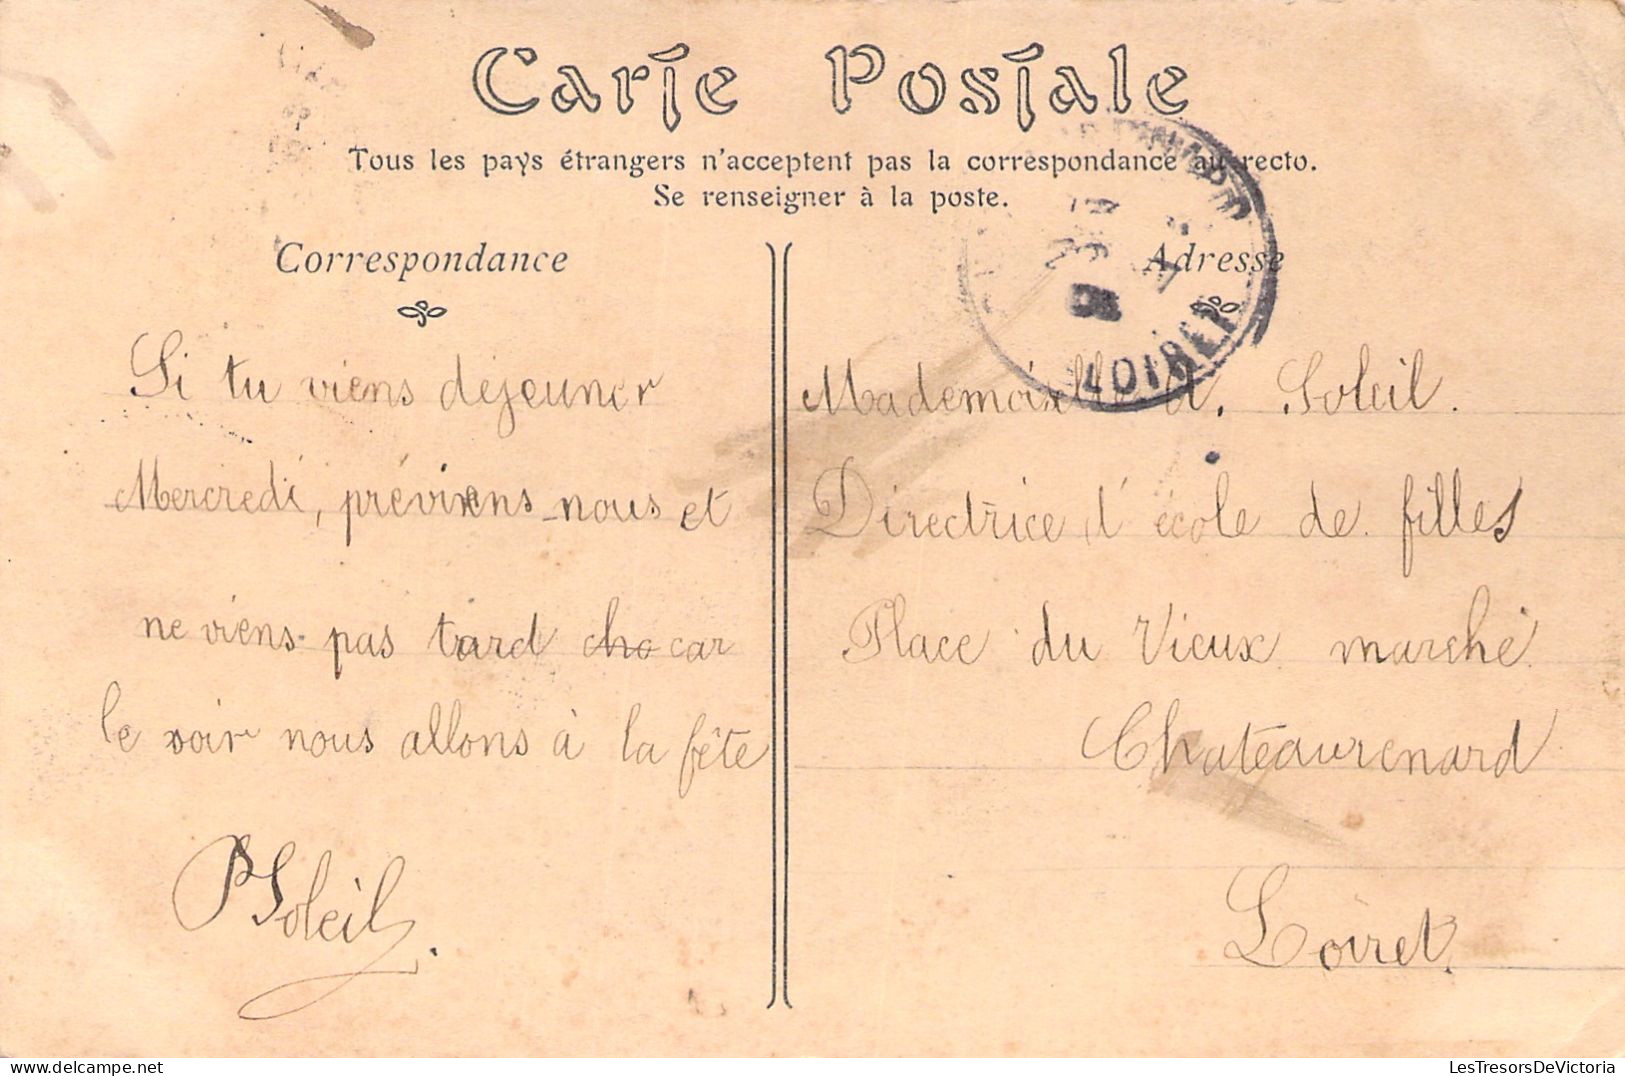 Carte Postale
Tous les pays étrangers n'acceptent pas la correspondance au recto.
Se renseigner à la poste.
Correspondance
Si tu viens déjeuner
Mercredi, préviens-nous et
ne viens pas tard cho car
le soir nous allons à la fête
Soleil.
Adresse
LOIRET
Mademoiselle Soleil.
Directrice d'école de filles
Place du Vieux marché
Chateaurenard
Loiret.
LesTresorsDeVictoria